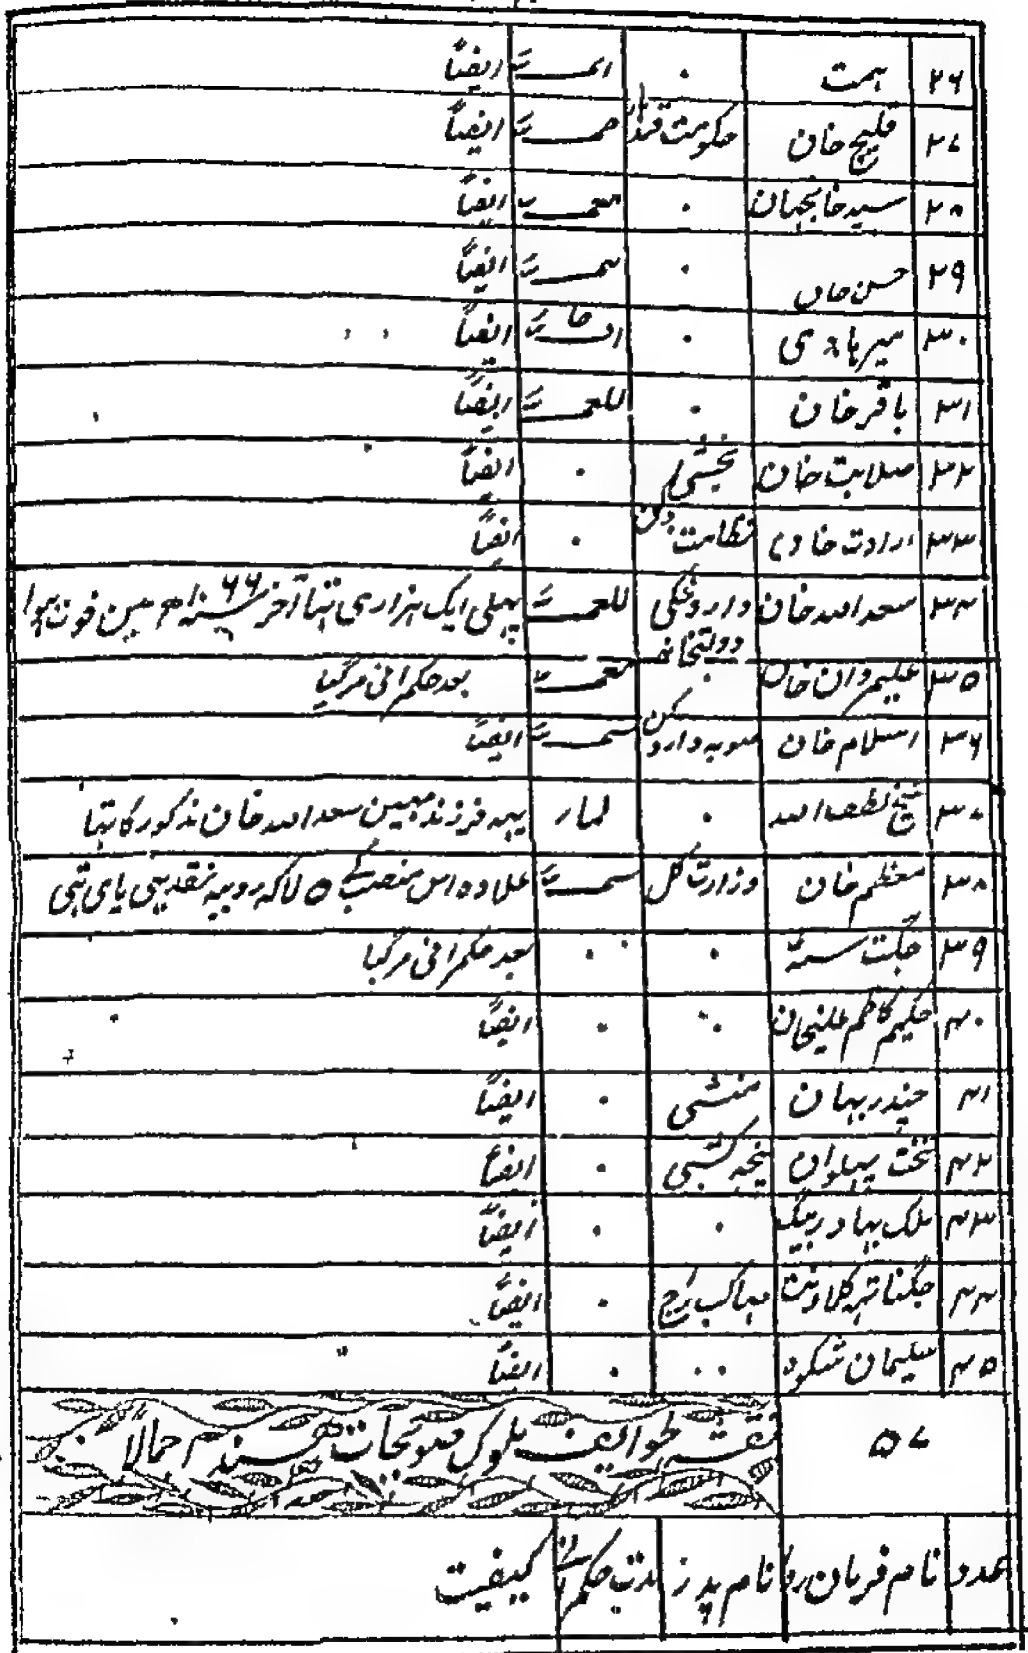 ۲۶ ہمت ۰ ایضاً
۲۷ قلیچ خان حکومت قندہار ایضاً
۲۸ سید خانجہان ۰ ایضاً
۲۹ حسن خان ۰ ایضاً
۳۰ ۰ ایضاً
۳۱ باقر خان ۰ ایضاً
۳۲ صلابت خان بخشی ۰ ایضاً
۳۳ ارادت خان نظامت دکن ۰ ایضاً
۳۴ سعد اللہ خان داروغگی دولتخانہ پہلی ایک ہزاری تہا آخر ہوا
۳۵ علیمردان خان ۰ بعد حکمرانی مرگیا
۳۶ اسلام خان صوبہ دار دکن ایضاً
۳۷ شیخ لطف اللہ ۰ یہہ فرزند مہین سعد اللہ خان مذکور کا تہا
۳۸ معظم خان وزارت کل علاوہ اس منصب کے ۵ لاکہ روپیہ نقد بہی پای تہی
۳۹ جگت سنگہ ۰ ۰ بعد حکمرانی مرگیا
۴۰ حکیم کاظم علیخان ۰ ۰ ایضاً
۴۱ چندر بہان منشی ۰ ایضاً
۴۲ تخت پہلوان پنجہ کشی ۰ ایضاً
۴۳ ملک بہادر بیگ ۰ ۰ ایضاً
۴۴ جگناتہہ کلاونت مہا کب راج ۰ ایضاً
۴۵ سلیمان شکوہ ۰ ۰ ایضاً
۵۷ نقشہ طوایف ملوک صوبجات ہند اجمالاً
عدد نام فرمان روا نام پدر مدت حکمرانی کیفیت